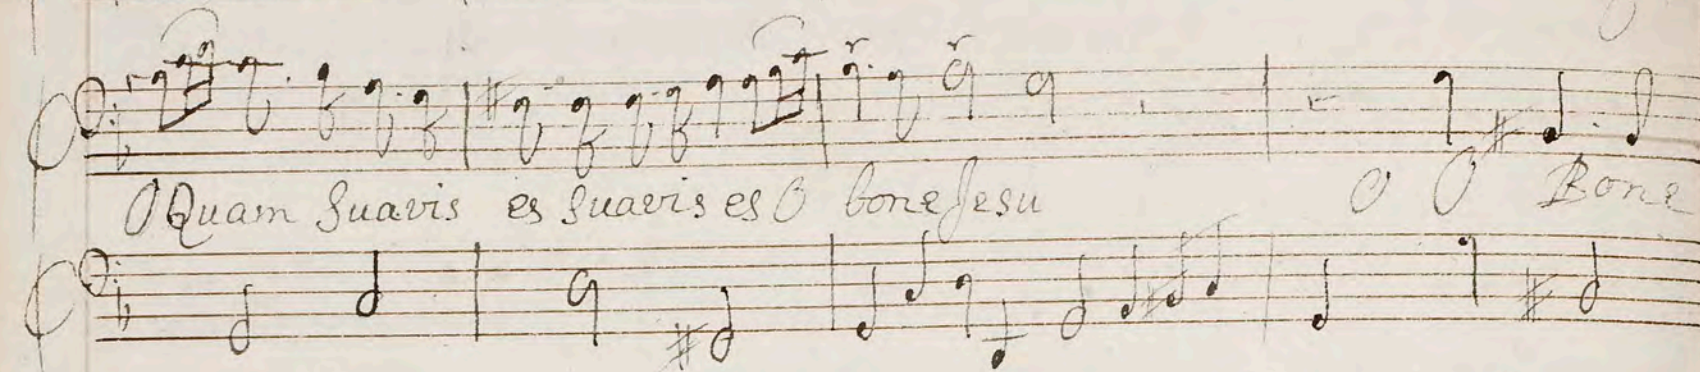 O Quam Suavis es Suavis es O bone Jesu O O Bone